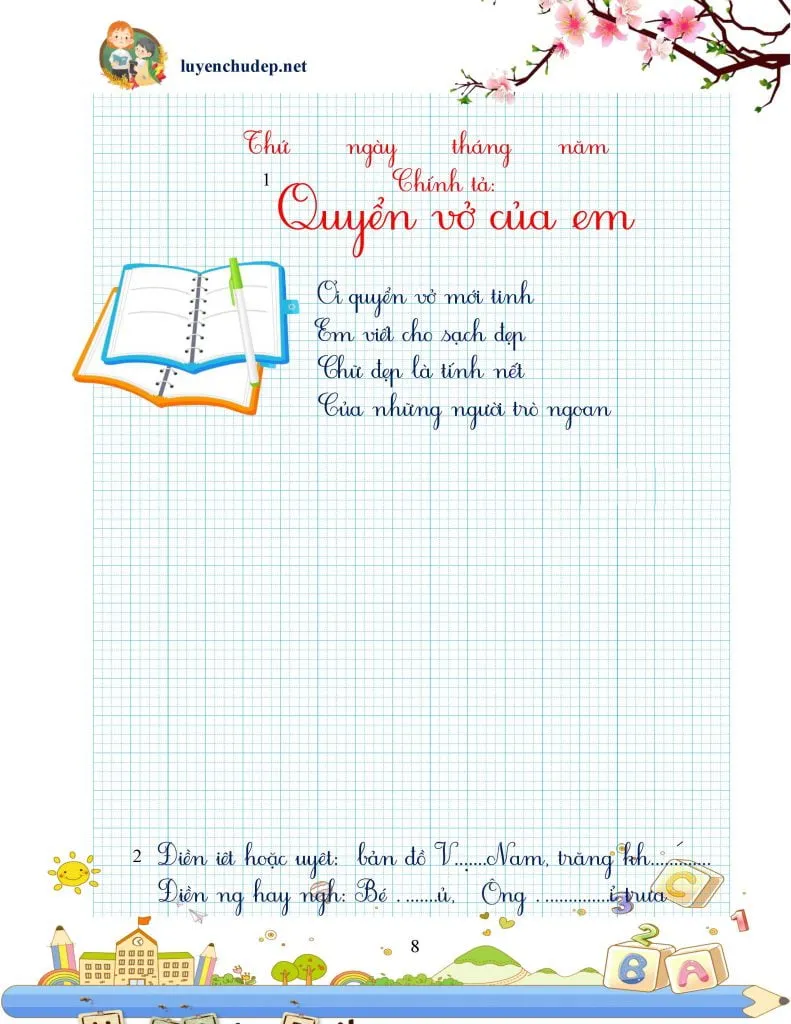 luyenchudep.net
Thứ ngày tháng năm
1 Chính tả:
Quyển vở của em
Ôi quyển vở mới tinh
Em viết cho sạch đẹp
Chữ đẹp là tính nết
Của những người trò ngoan
2 Điền iêt hoặc uyêt: bản đồ Vị......Nam, trăng kh............
Điền ng hay ngh: Bé . .......ủ, Ông . ..............ỉ trưa
C
3
1
2
B A
8